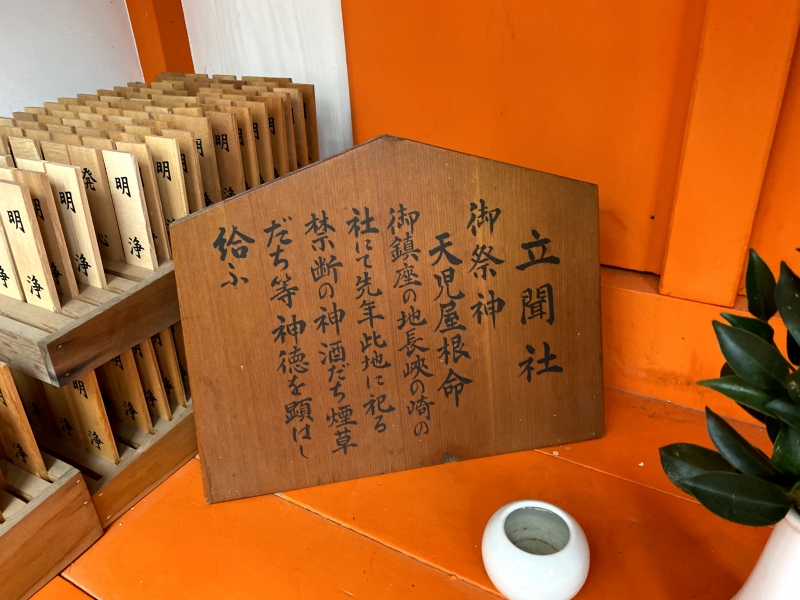 立聞社
御祭神
天児屋根命
御鎮座の地長峡の崎の
社にて先年此地に祀る
禁断の神酒だち煙草
だち等神徳を顕はし
給ふ
明浄
明浄
明浄
発心
明浄
明
明
明
明
浄
浄
浄
浄